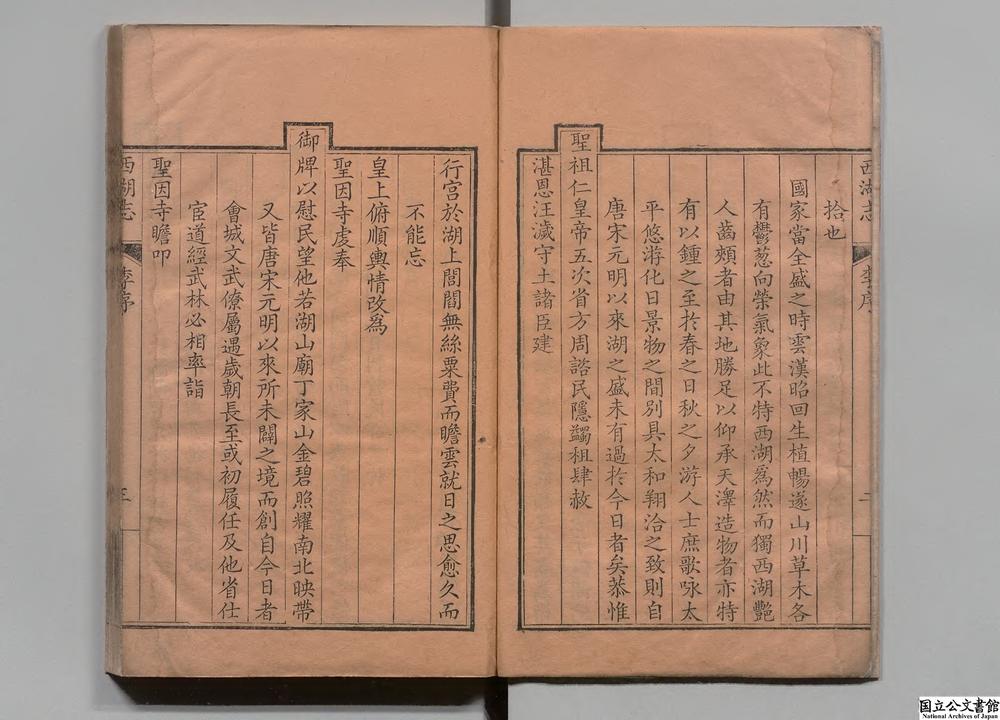 西湖志
李序
二
拾也
國家當全盛之時雲漢昭回生植暢遂山川草木各
有鬱葱向榮氣象此不特西湖爲然而獨西湖艷
人齒頰者由其地勝足以仰承天澤造物者亦特
有以鍾之至於春之日秋之夕游人士庶歌咏太
平悠游化日景物之間別具太和翔洽之致則自
唐宋元明以來湖之盛未有過於今日者矣恭惟
聖祖仁皇帝五次省方周諮民隱蠲租肆赦
湛恩汪濊守土諸臣建
行宮於湖上閭閻無絲粟費而瞻雲就日之思愈久而
不能忘
皇上俯順輿情改爲
聖因寺虔奉
御牌以慰民望他若湖山廟丁家山金碧照耀南北映帶
又皆唐宋元明以來所未闢之境而創自今日者
會城文武僚屬遇歲朝長至或初履任及他省仕
宦道經武林必相率詣
聖因寺瞻叩
西湖志
李序
三
国立公文書館
National Archives of Japan